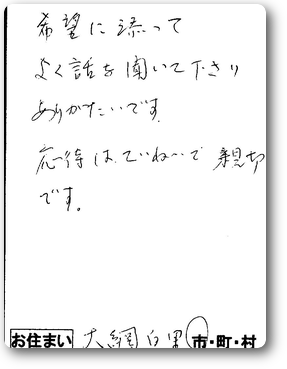 希望に添って
よく話を聞いて下さり
ありがたいです。
応待は、ていねいで親切
です。
お住まい 大網白里 市・町・村